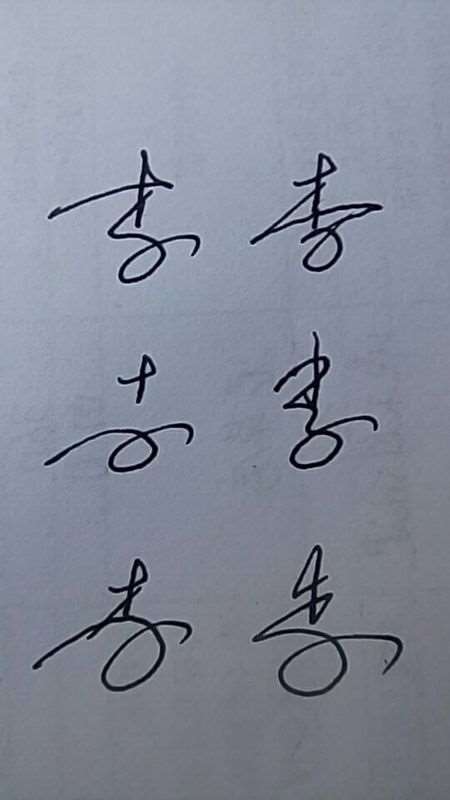 李 李
李 李
李 李